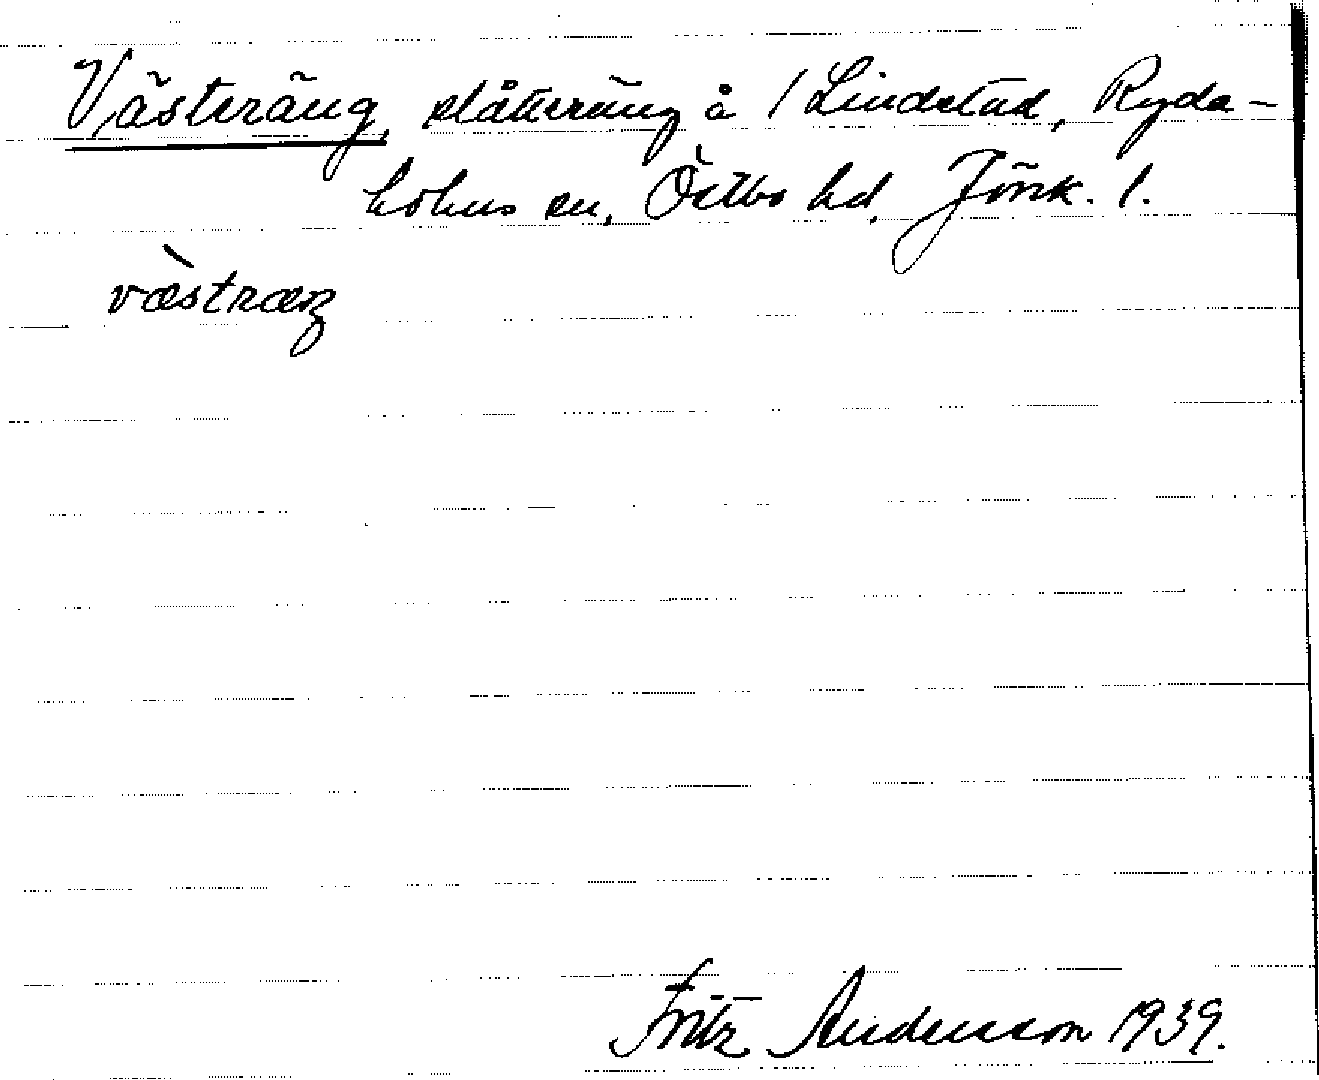 Västeräng, slåtteräng å 1 Lindstad, Ryda-
holms sn, Östbo hd, Jönk. l.
væ̀stræŋ
Fritz Andersson 1939.